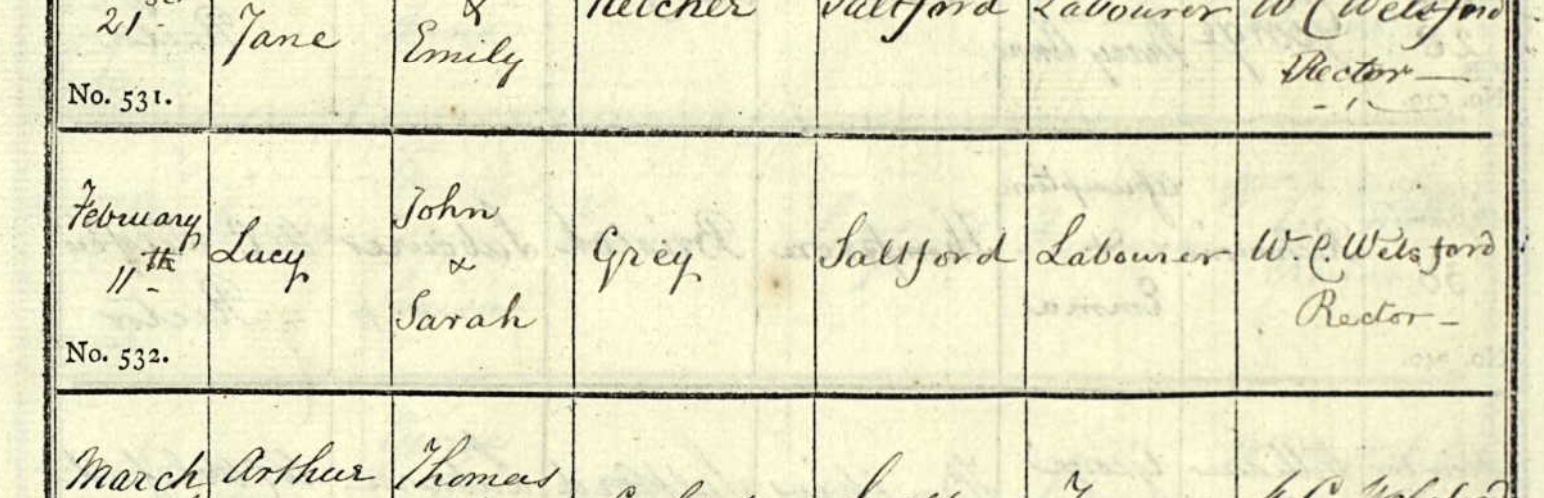 21 Jane & Emily Saltford Labourer W C Welsford
Rector
No. 531.
February 11th Lucy John & Sarah Grey Saltford Labourer W. C. Welsford Rector
No. 532.
March Arthur Thomas